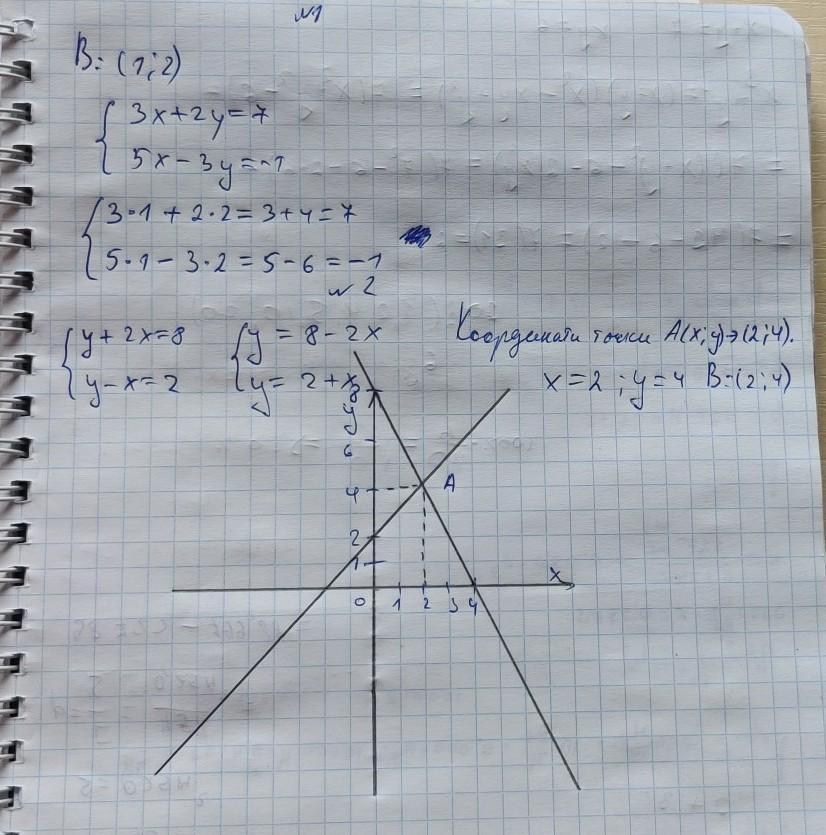 №1
В: (1;2)
3x+2y=7
5x-3y=-1
3·1+2·2=3+4=7
5·1-3·2=5-6=-1
№2
y+2x=8
y-x=2
y=8-2x
y=2+x
Координати точки A(x;y)→(2;4).
x=2; y=4 В:(2;4)
8
y
6
4
A
2
1
x
0 1 2 3 4